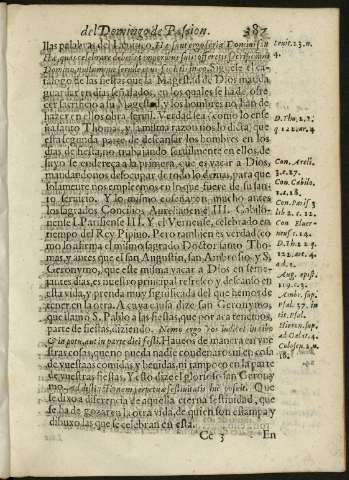 del Domingo de Passion. 387
llas palabras del Leuitico. Hæ sunt ergo feriæ Domini san
tæ, quas celebrare debetis
Domino,
talogo de las fiestas que la Magestad de Dios manda
guardar en dias señalados, en los quales se ha de ofre-
cer sacrificio a su Magestad, y los hombres no han de
hazer en ellos obra seruil. Verdad sea (como lo ense
ña santo Thomas, y la misma razon nos lo dicta) que
esta segunda parte de descansar los hombres en los
dias de fiesta, no trabajando seruilmente en ellos, de
suyo se endereça a la primera, que es vacar a Dios,
mandandonos desocupar de todo lo demas, para que
solamente nos empleemos en lo que fuere de su san-
to seruicio. Y lo mismo enseñaron mucho antes
los sagrados Concilios Aurelianense III. Cabilo-
niense I. Parisiense III. y el celebrado en
tiempo del Rey Pipino. Pero tambien es verdad (co
mo lo afirma el mismo sagrado Doctor santo Tho-
mas, y antes que el san Augustin, san Ambrosio, y S.
Geronymo) que este mismo vacar a Dios en seme-
jantes dias, es nuestro principal refresco y descanso en
esta vida, y prenda muy significada del que hemos de
tener en la otra. A cuya causa dize san Geronymo,
que llamò S. Pablo a las fiestas, que por acà tenemos,
parte de fiestas, diziendo. Nemo ergo vos iudicet in cibo
& in potu, aut in parte diei festi. Haueos de manera en vue
stras cosas, que no pueda nadie condenaros ni en cosa
de vuestras comidas y beuidas, ni tampoco en la parte
de vuestras fiestas. Y esto dize el glorioso san Geron-
ymo,
se dixo a diferencia de aquella eterna festiuidad, que
se ha de gozar en la otra vida, de quien son estampa y
dibuxo las que se celebran en esta.
Cc 3 En
Leuit. 23. n.
4.
D. Tho. 2. 2.
q. 122. ar. 4
Con. Areli.
3. c. 27.
Con. Cabilo.
1. c. 18.
Con. Paris. 3
lib. 2. c. 12.
D. Th. 2. 2. q.
122. art. 4.
ad. 2.
Aug. epist.
119. c. 13.
Ambr. sup.
Hieron. sup.
ad Galat. 4.
Colosen. 2. n.